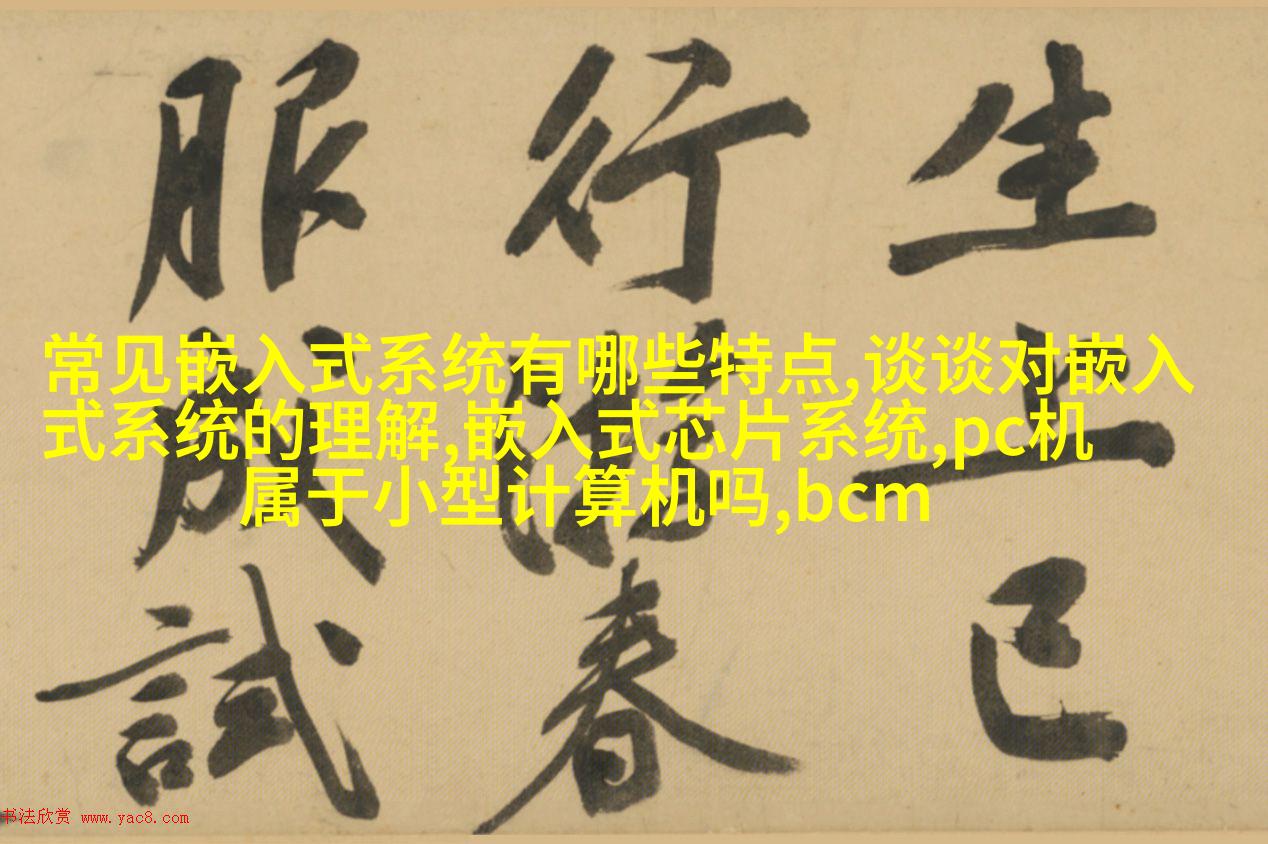 生上巳
行春
服成試
常见嵌入式系统有哪些特点,谈谈对嵌入
式系统的理解,嵌入式芯片系统,pc机
属于小型计算机吗,bcm
书法欣赏 www.yac8.com